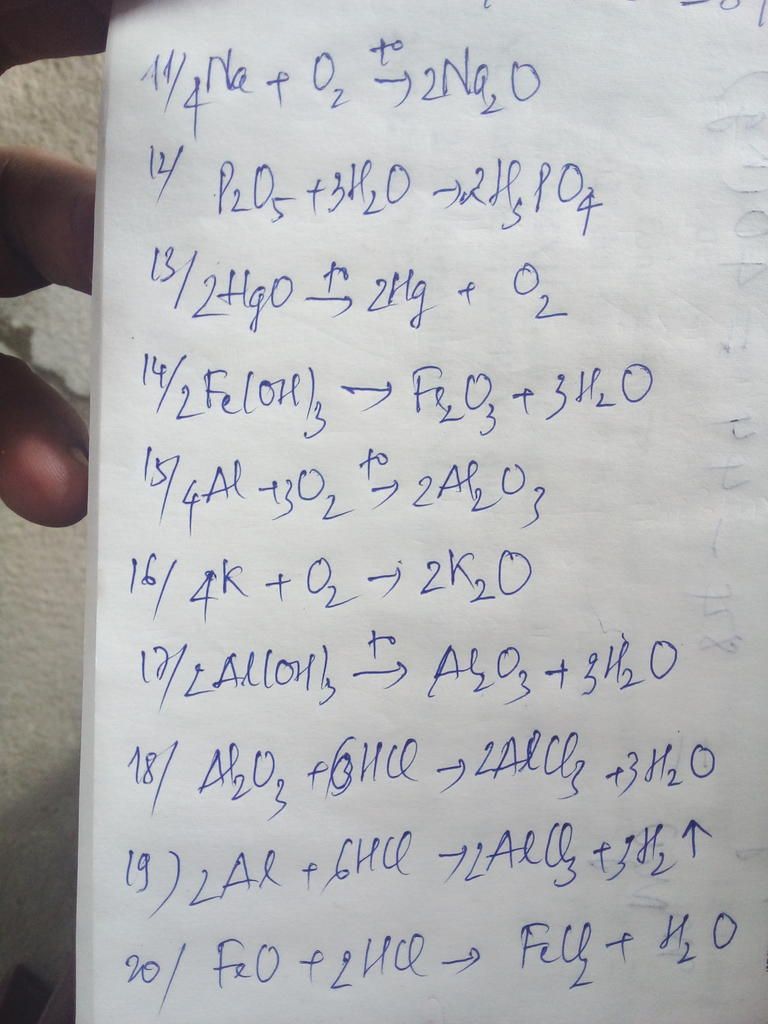 11/ 4Na + O₂ →(t°) 2Na₂O
12/ P₂O₅ + 3H₂O → 2H₃PO₄
13/ 2HgO →(t°) 2Hg + O₂
14/ 2Fe(OH)₃ → Fe₂O₃ + 3H₂O
15/ 4Al + 3O₂ →(t°) 2Al₂O₃
16/ 4K + O₂ → 2K₂O
17/ 2Al(OH)₃ →(t°) Al₂O₃ + 3H₂O
18/ Al₂O₃ + 6HCl → 2AlCl₃ + 3H₂O
19) 2Al + 6HCl → 2AlCl₃ + 3H₂↑
20/ FeO + 2HCl → FeCl₂ + H₂O